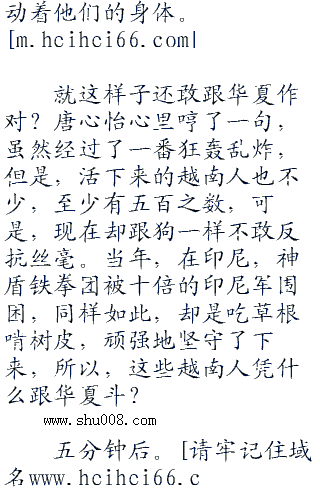 动着他们的身体。
[m.hcihci66.com|
就这样子还敢跟华夏作
对？唐心怡心里哼了一句，
虽然经过了一番狂轰乱炸，
但是，活下来的越南人也不
少，至少有五百之数，可
是，现在却跟狗一样不敢反
抗丝毫。当年，在印尼，神
盾铁拳团被十倍的印尼军围
困，同样如此，却是吃草根
啃树皮，顽强地坚守了下
来，所以，这些越南人凭什
么跟华夏斗？
www.shu008.com
五分钟后。[请牢记住域
名www.hcihci66.c